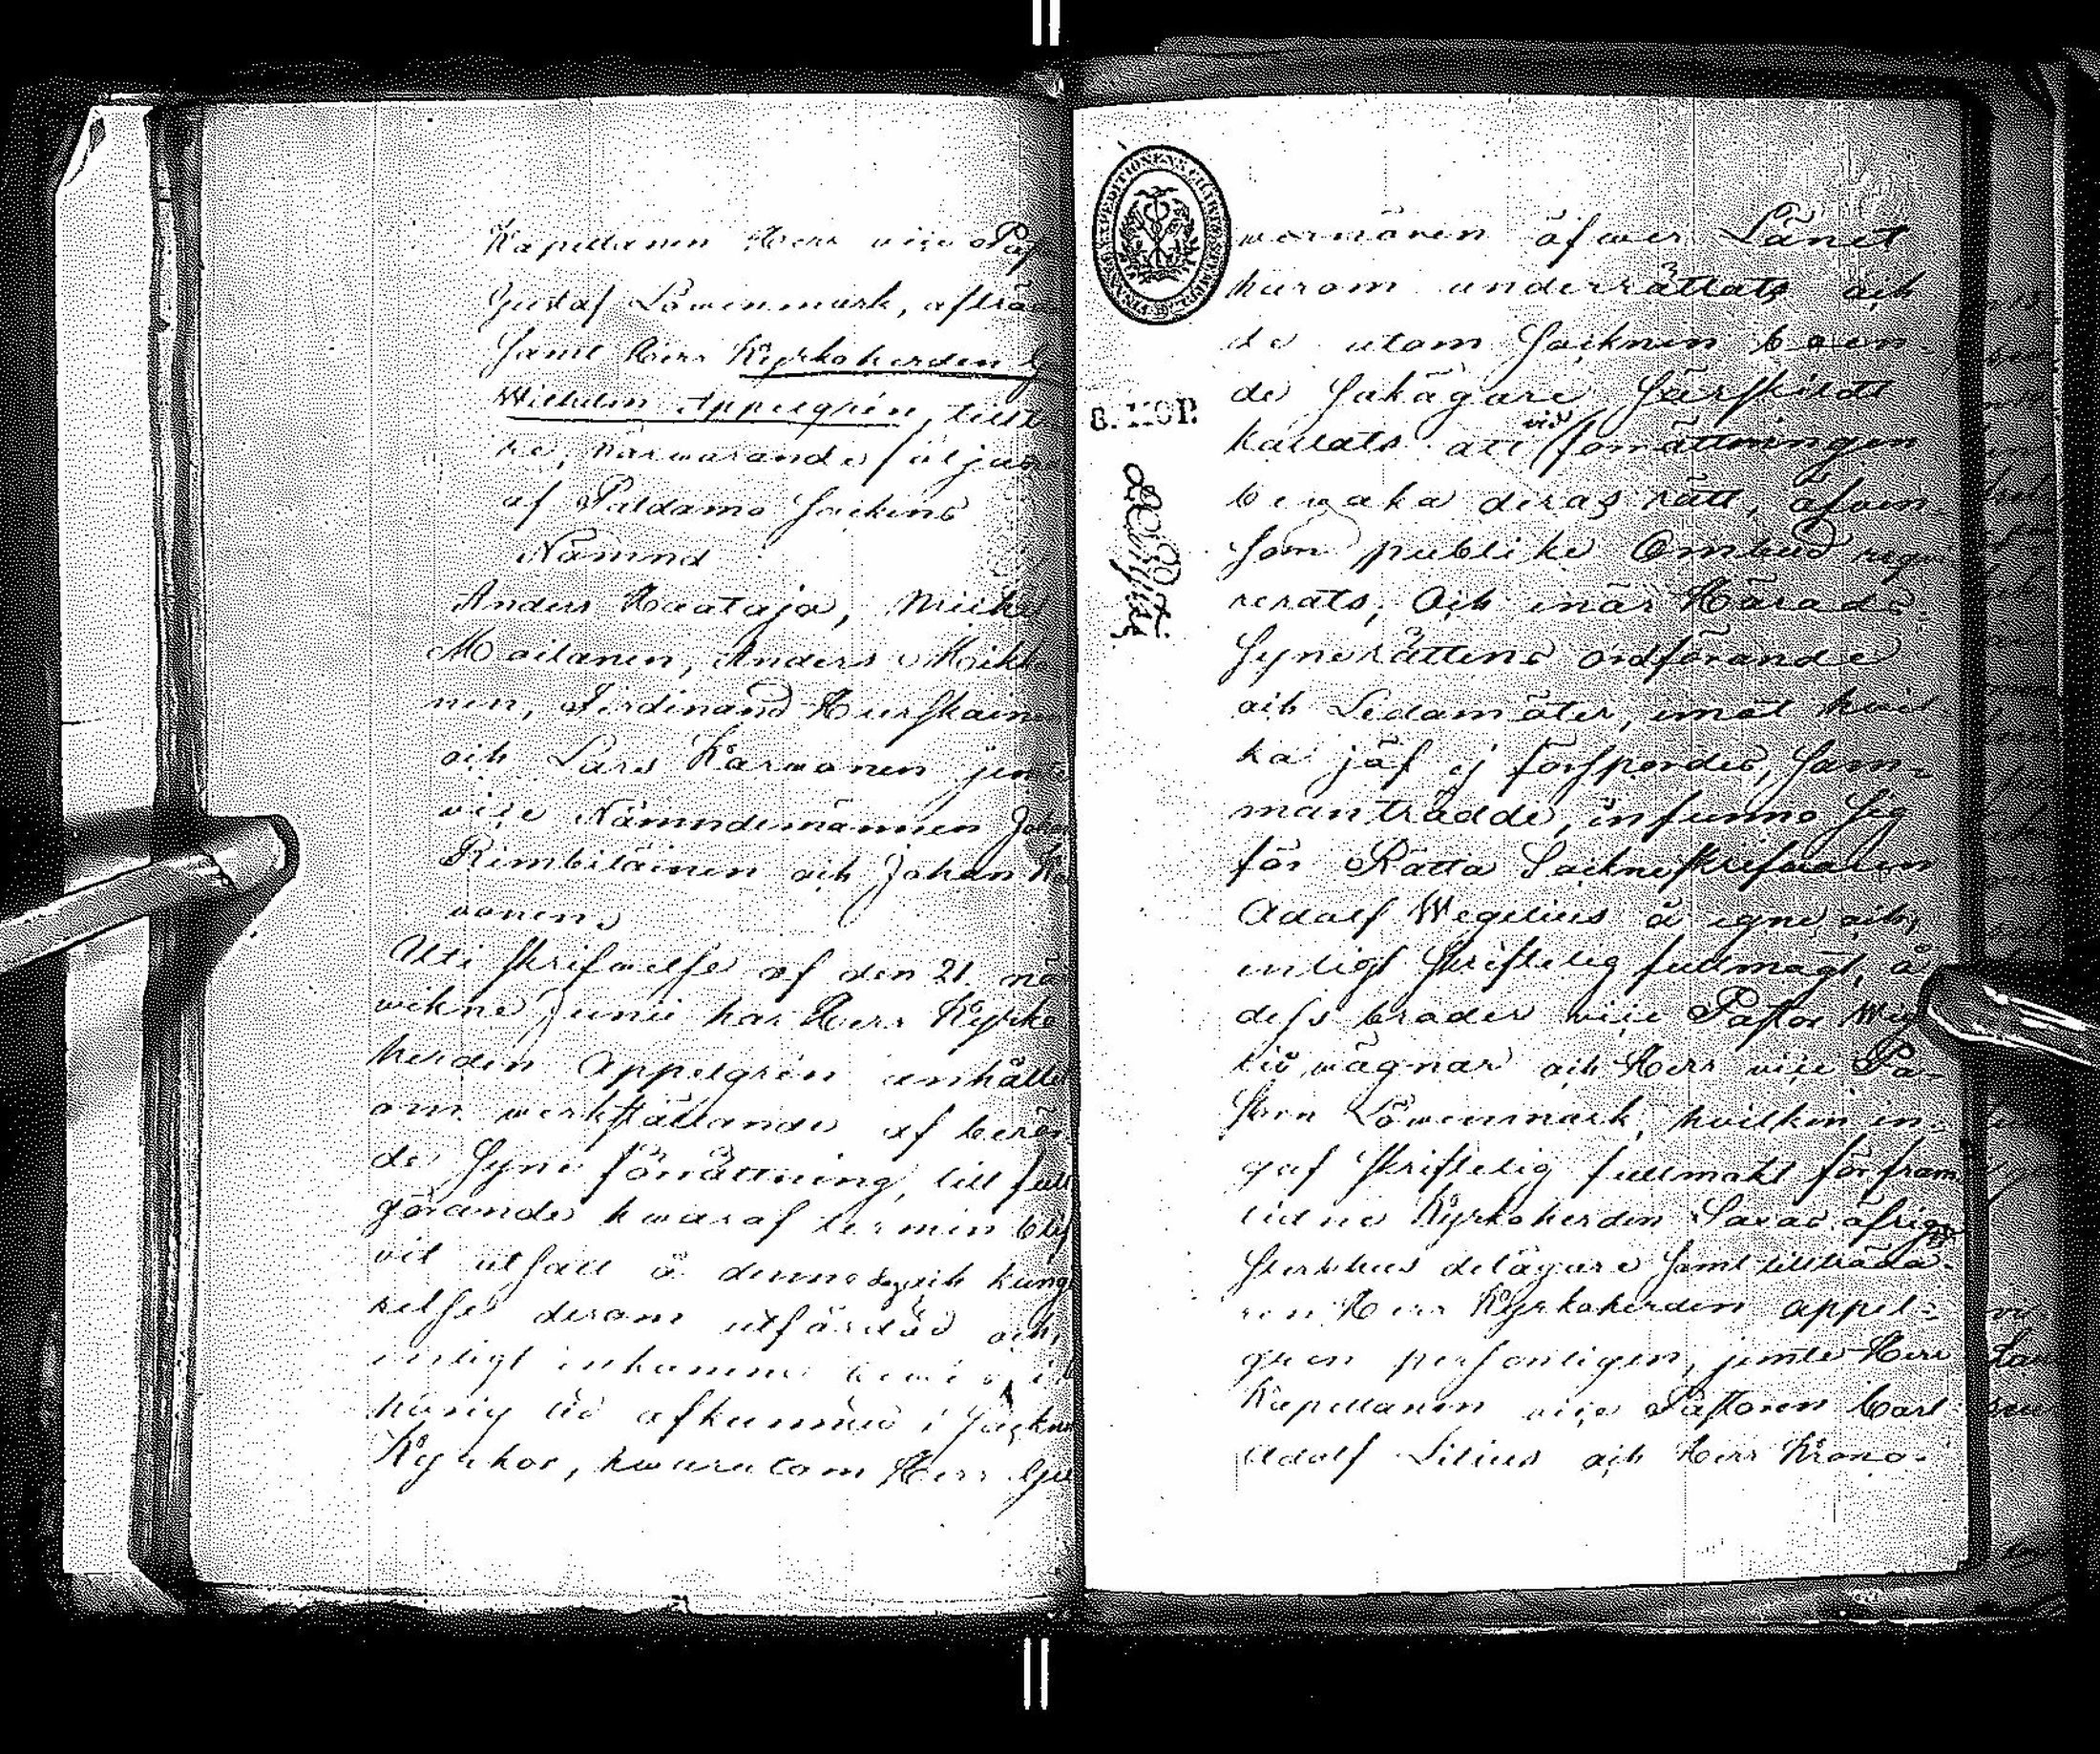 Kapellanen Herr vice Pas
Gustaf Löwenmark, afträd
samt Herr Kyrkoherden G
Wilhelm Appelgrén, tillt
re, närwarande följan
af Paldamo Sockens
Nämnd
Anders Haataja, Michel
Moilanen, Anders Mikko
nen, Ferdinand Hurskainen
och Lars Karwonen jemte
vice Nämndemännen Joh
Rimbiläinen och Johan Ka
vonen.
Uti skrifwelse af den 21. nä
wikne Junii har Herr Kyrko
herden Appelgren anhållit
om werkställande af berör
de Syne förrättning, till full
görande hwaraf termin blif
vit utsatt å denne dag och kungö
relse derom utfärdad och,
enligt inkomne bewis, i
hörig tid afkunnad i Sockne
Kyrkor, hwarutom Herr Gu
wernören öfwer Länet
härom underrättats och
de utom Socknen boen-
de Sakägare särskildt
kallats att vid förrättningen
bewaka deras rätt, äfven-
som publike Ombud requi
rerats; Och när Härads-
Synerättens ordförande
och Ledamöter, emot hwil
ka jäf ej förspordes, sam-
manträdde, infunno sig
för Rätta Sockneskrifwaren
Adolf Wegelius å egne och,
enligt skriftelig fullmagt, å
dess broder vice Pastor Weg
lii wägnar och Herr vice Pa-
storn Löwenmark, hvilken in-
gaf skriftelig fullmakt för fram
lidne Kyrkoherden Saxas öfrige
Sterbhus delägare samt tillträda-
ren Herr Kyrkoherden Appel-
gren personligen, jemte Herr
Kapellanen vice Pastoren Carl
Adolf Lilius och Herr Krono-